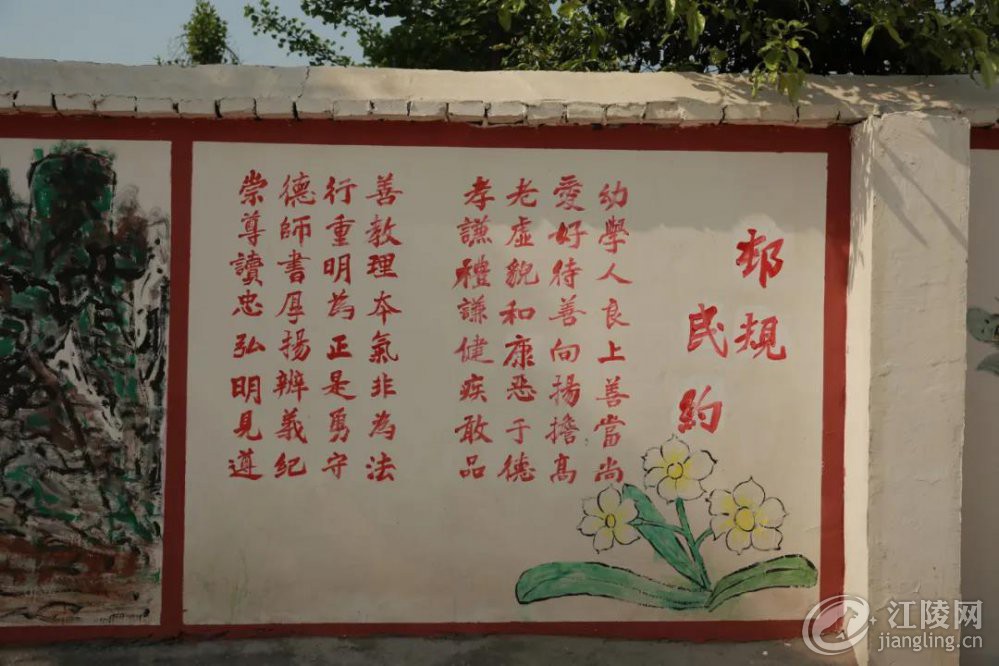 邨規
民約
崇德行善
尊師重教
讀書明理
忠厚為本
弘揚正氣
明辨是非
見義勇為
遵紀守法
孝老愛幼
謙虛好學
禮貌待人
謙和善良
健康向上
疾惡揚善
敢于擔當
品德高尚
江陵网
jiangling.cn